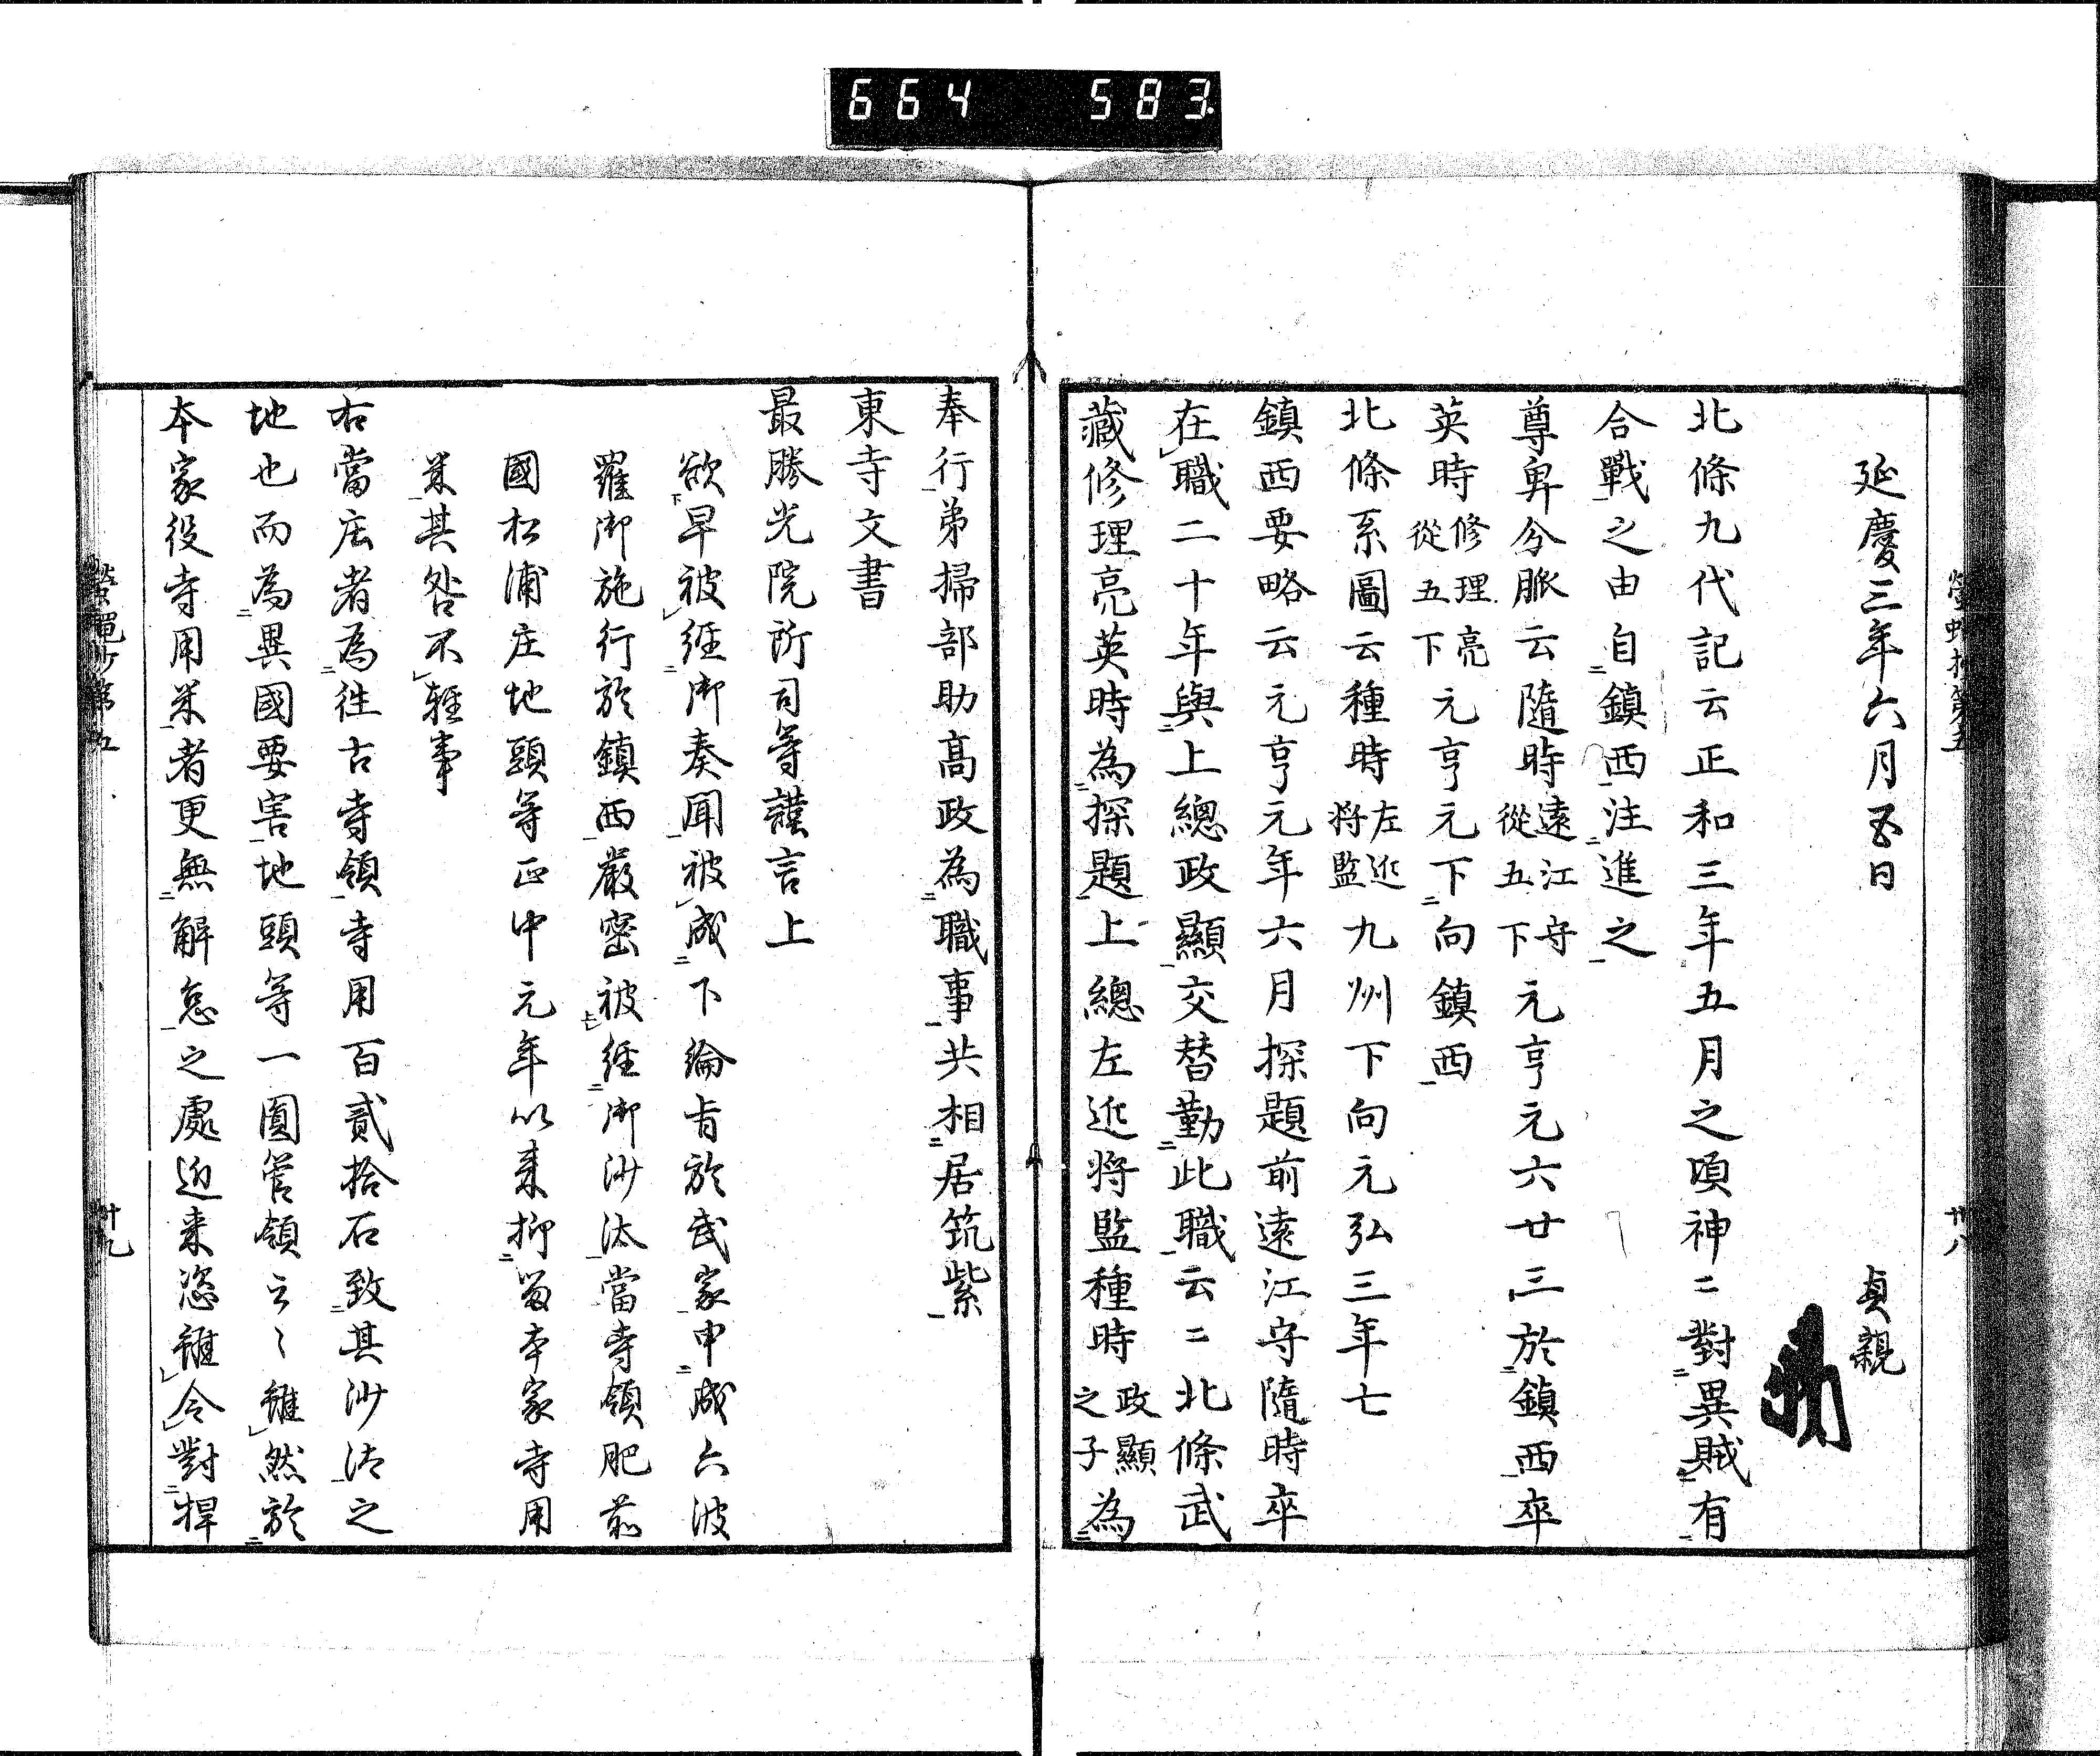 664 583
延慶三年六月五日 貞親
北條九代記云正和三年五月之頃神〻對異賊有
合戰之由自鎮西注進之
尊卑分脈云隨時遠江守從五下元亨元六廿三於鎮西卒
英時修理亮從五下元亨元下向鎮西
北條系圖云種時左近將監九州下向元弘三年七
鎮西要略云元亨元年六月探題前遠江守隨時卒
在職二十年與上總政顯交替勤此職云〻北條武
藏修理亮英時為探題上總左近将監種時政顯之子為
奉行弟掃部助高政為職事共相居筑紫
東寺文書
最勝光院所司等謹言上
欲早被經御奏聞被成下綸旨於武家申成六波
羅御施行於鎮西嚴密被經御沙汰當寺領肥前
國松浦庄地頭等正中元年以来抑留本家寺用
米其咎不輕事
右當庄者為往古寺領寺用百貳拾石致其沙法之
地也而為異國要害地頭等一圓管領云〻雖然於
本家役寺用米者更無解怠之處近来恣雖令對捍
螢蠅抄第五 廿八
螢蠅抄第五 廿九